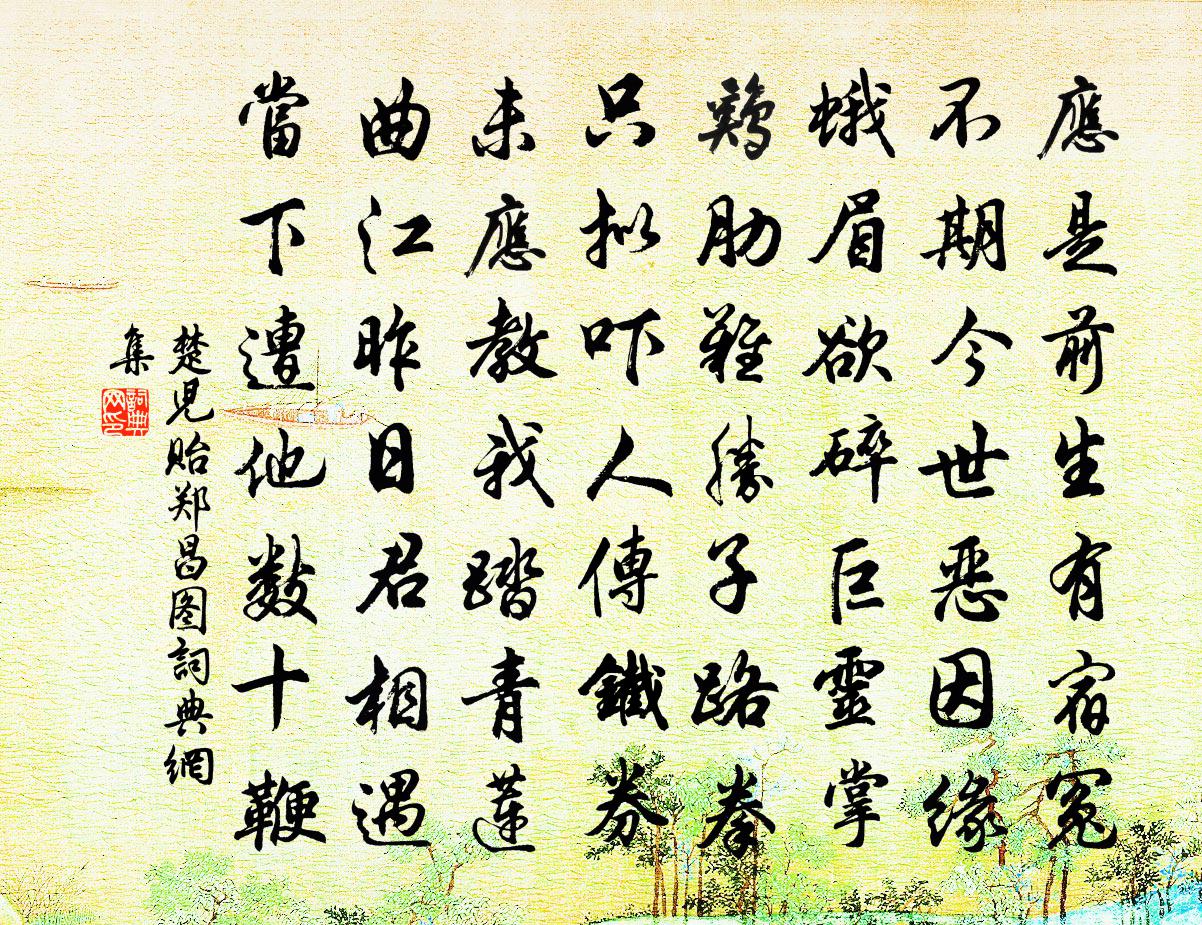 應是前生有宿冤
不期今世惡因緣
蛾眉欲碎巨靈掌
鷄肋難勝子路拳
只拟吓人傳鐵券
未應教我踏青蓮
曲江昨日君相遇
當下遭他數十鞭
楚兒貽郑昌图詞典網
集
詞典网印